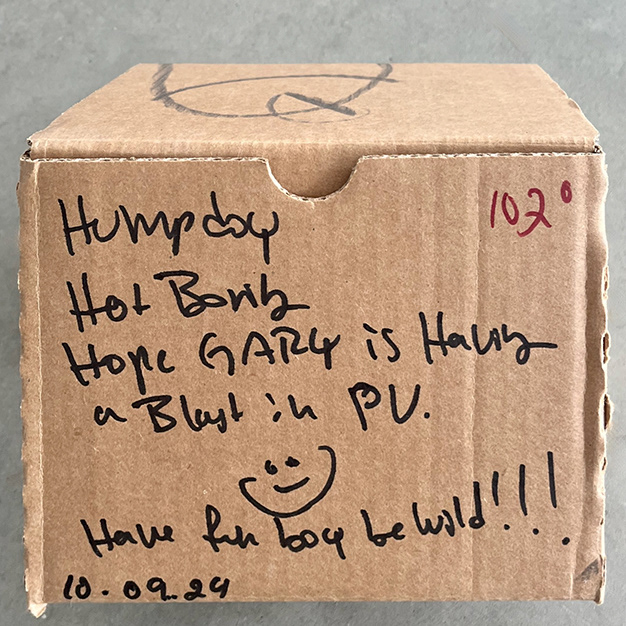 Humpday
102°
Hot Boring
Hope GARY is Having
a Blast in PV.
Have fun boy be wild!!!
10.09.24